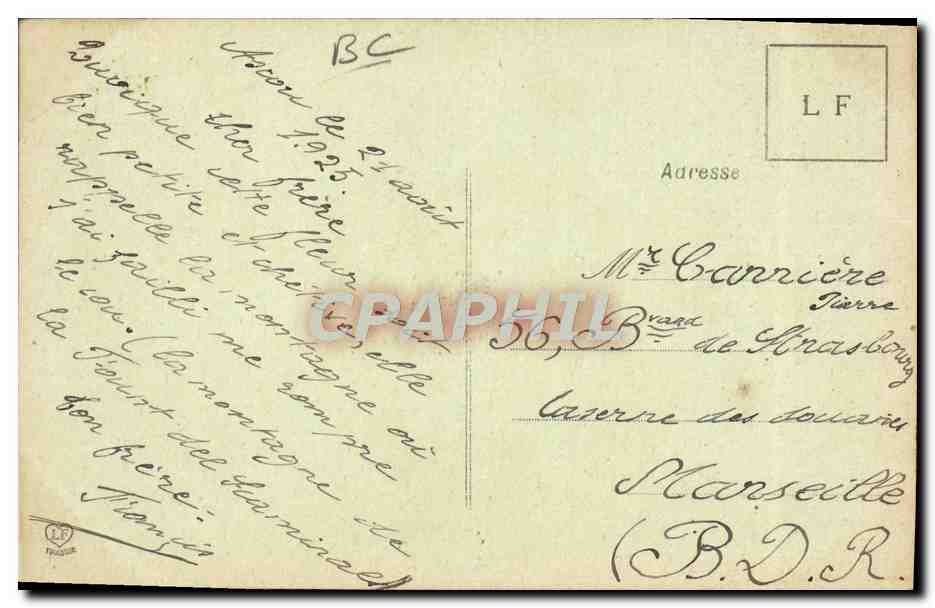 BC
Ascou le 21 août
1925.
cher frère
Quoique cette fleur soit
bien petite et chétive, elle
rappelle la montagne où
j'ai failli me rompre
le cou. (la montagne de
la Fount del
ton frère.
Francis
LF
TOULOUSE
L F
Adresse
Mr Carrière
Pierre
56, Bvard de Strasbourg
Caserne des douanes
Marseille
(B.D.R.
CPARPHIL